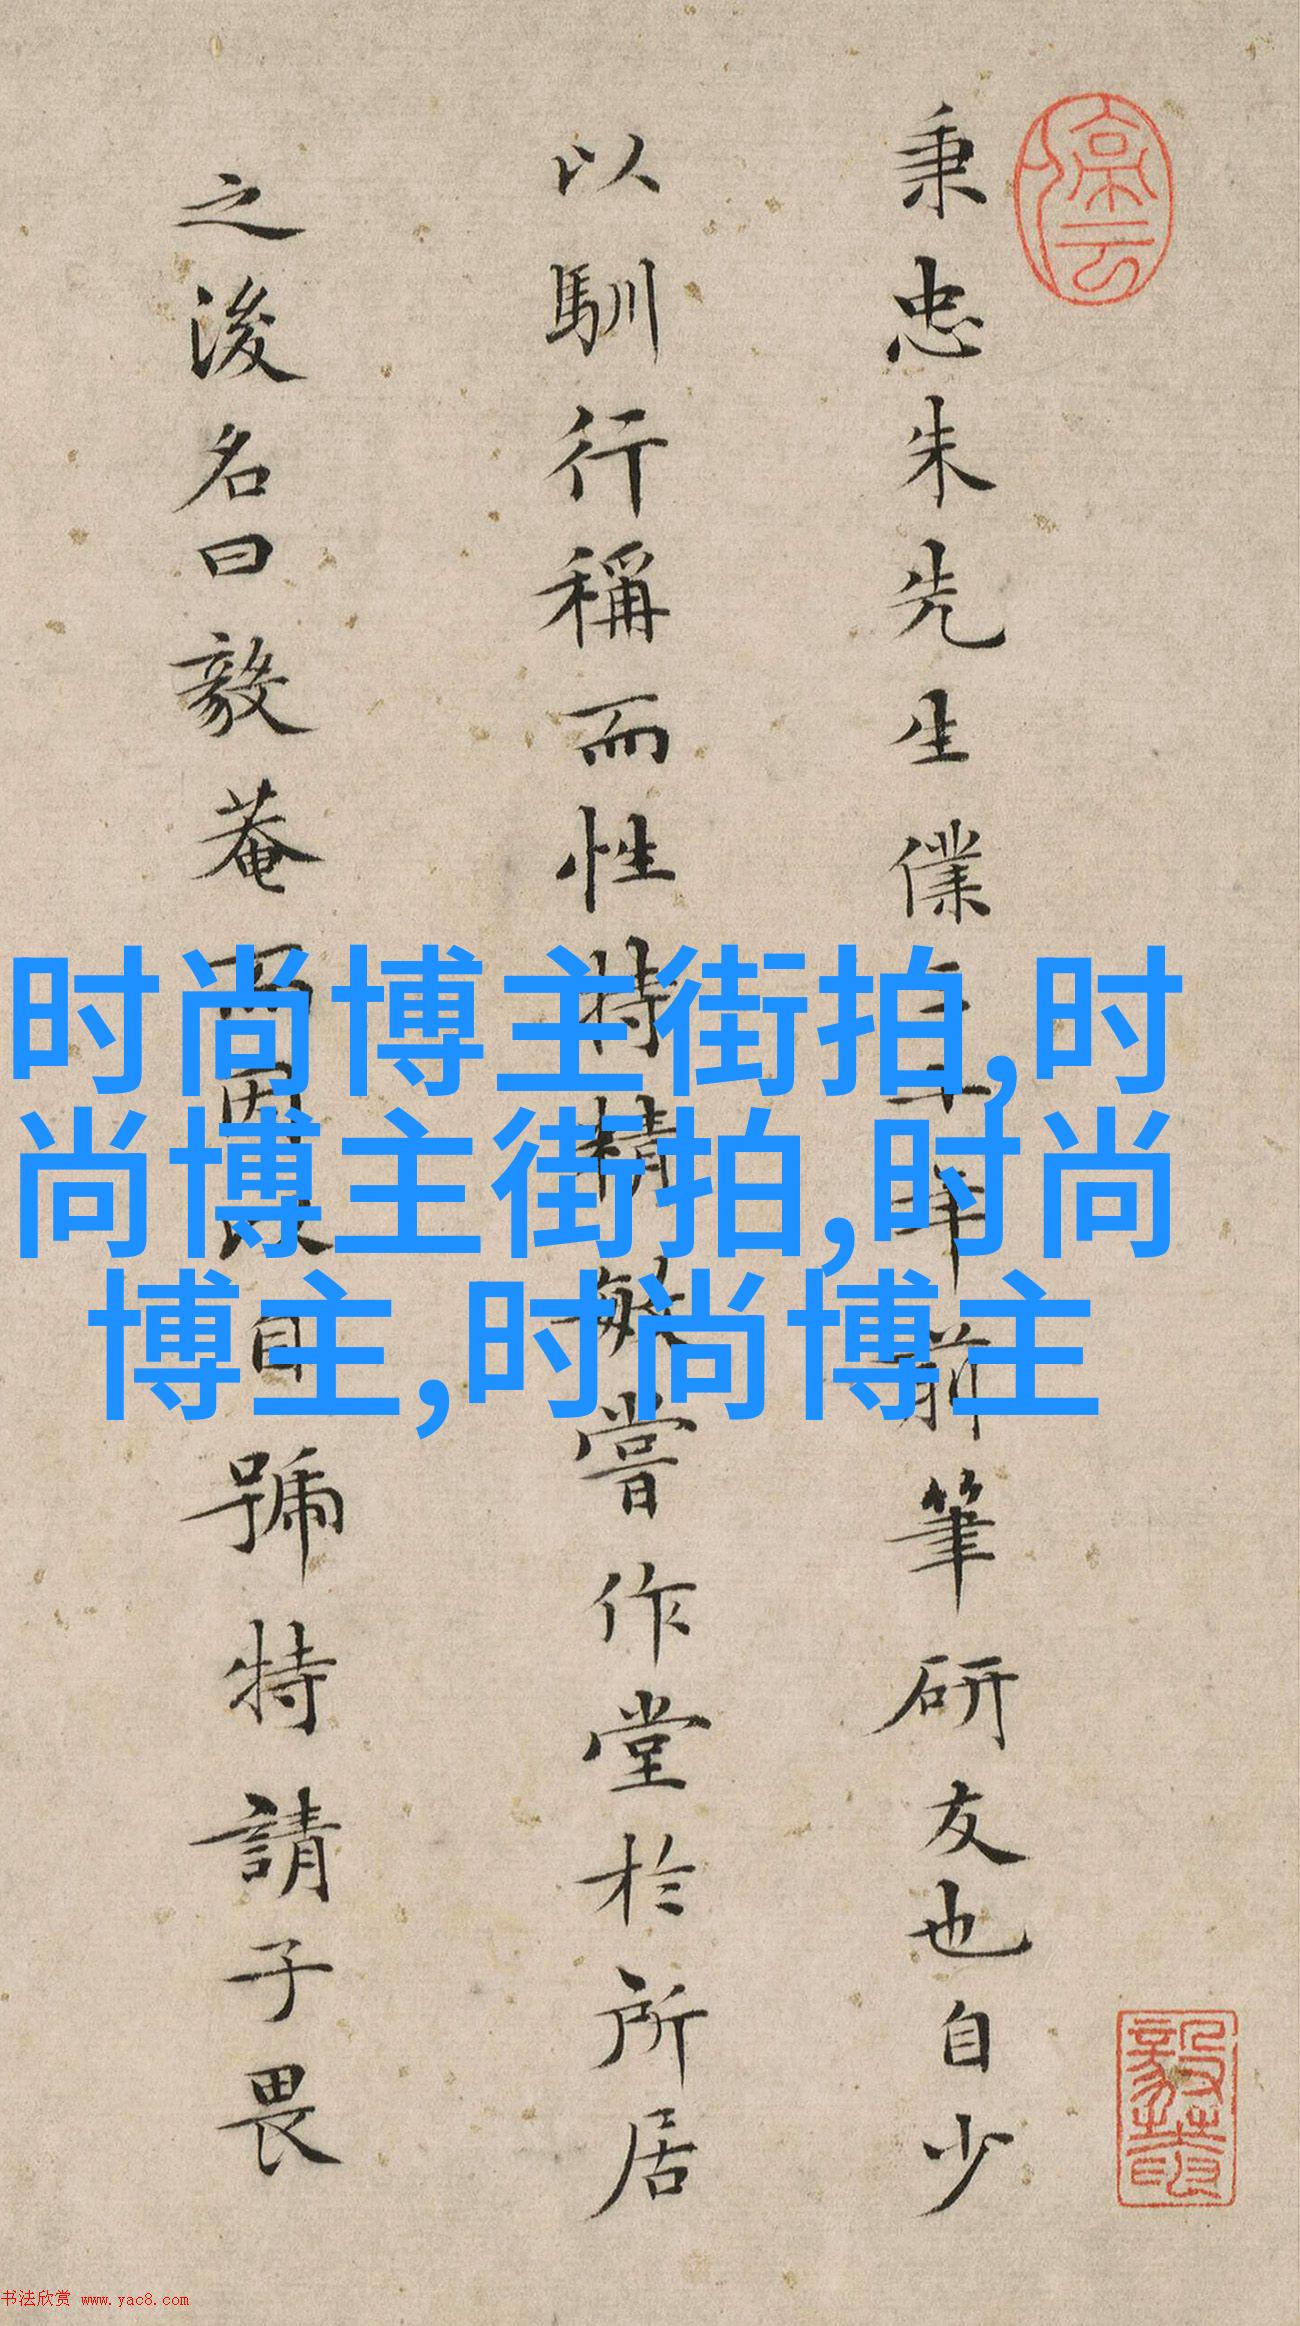 秉忠朱先生僕三十年前筆研友也自少
以馴行稱而性特精敏嘗作堂於所居
之後名曰毅菴而因以自號特請子畏
时尚博主街拍,时
尚博主街拍,时尚
博主,时尚博主
书法欣赏 www.yac8.com